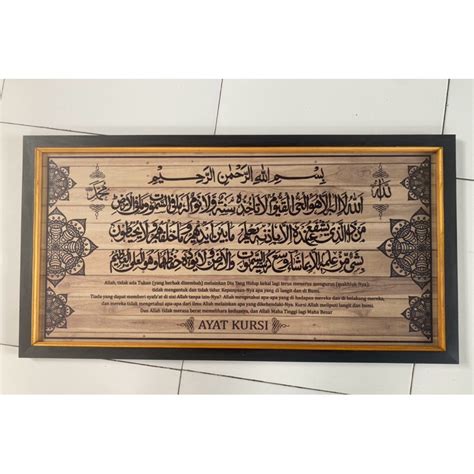 بسم الله الرحمن الرحيم
محمد
الله
الله لا إله إلا هو الحي القيوم لا تأخذه سنة ولا نوم له ما في السموات وما في الأرض
من ذا الذي يشفع عنده إلا بإذنه يعلم ما بين أيديهم وما خلفهم ولا يحيطون
بشيء من علمه إلا بما شاء وسع كرسيه السموات والأرض ولا يؤده حفظهما وهو العلي العظيم
Allah, tidak ada Tuhan (yang berhak disembah) melainkan Dia Yang Hidup kekal lagi terus menerus mengurus (makhluk-Nya);
tidak mengantuk dan tidak tidur. Kepunyaan-Nya apa yang di langit dan di bumi.
Tiada yang dapat memberi syafa'at di sisi Allah tanpa izin-Nya? Allah mengetahui apa-apa yang di hadapan mereka dan di belakang mereka,
dan mereka tidak mengetahui apa-apa dari ilmu Allah melainkan apa yang dikehendaki-Nya. Kursi Allah meliputi langit dan bumi.
Dan Allah tidak merasa berat memelihara keduanya, dan Allah Maha Tinggi lagi Maha Besar
AYAT KURSI